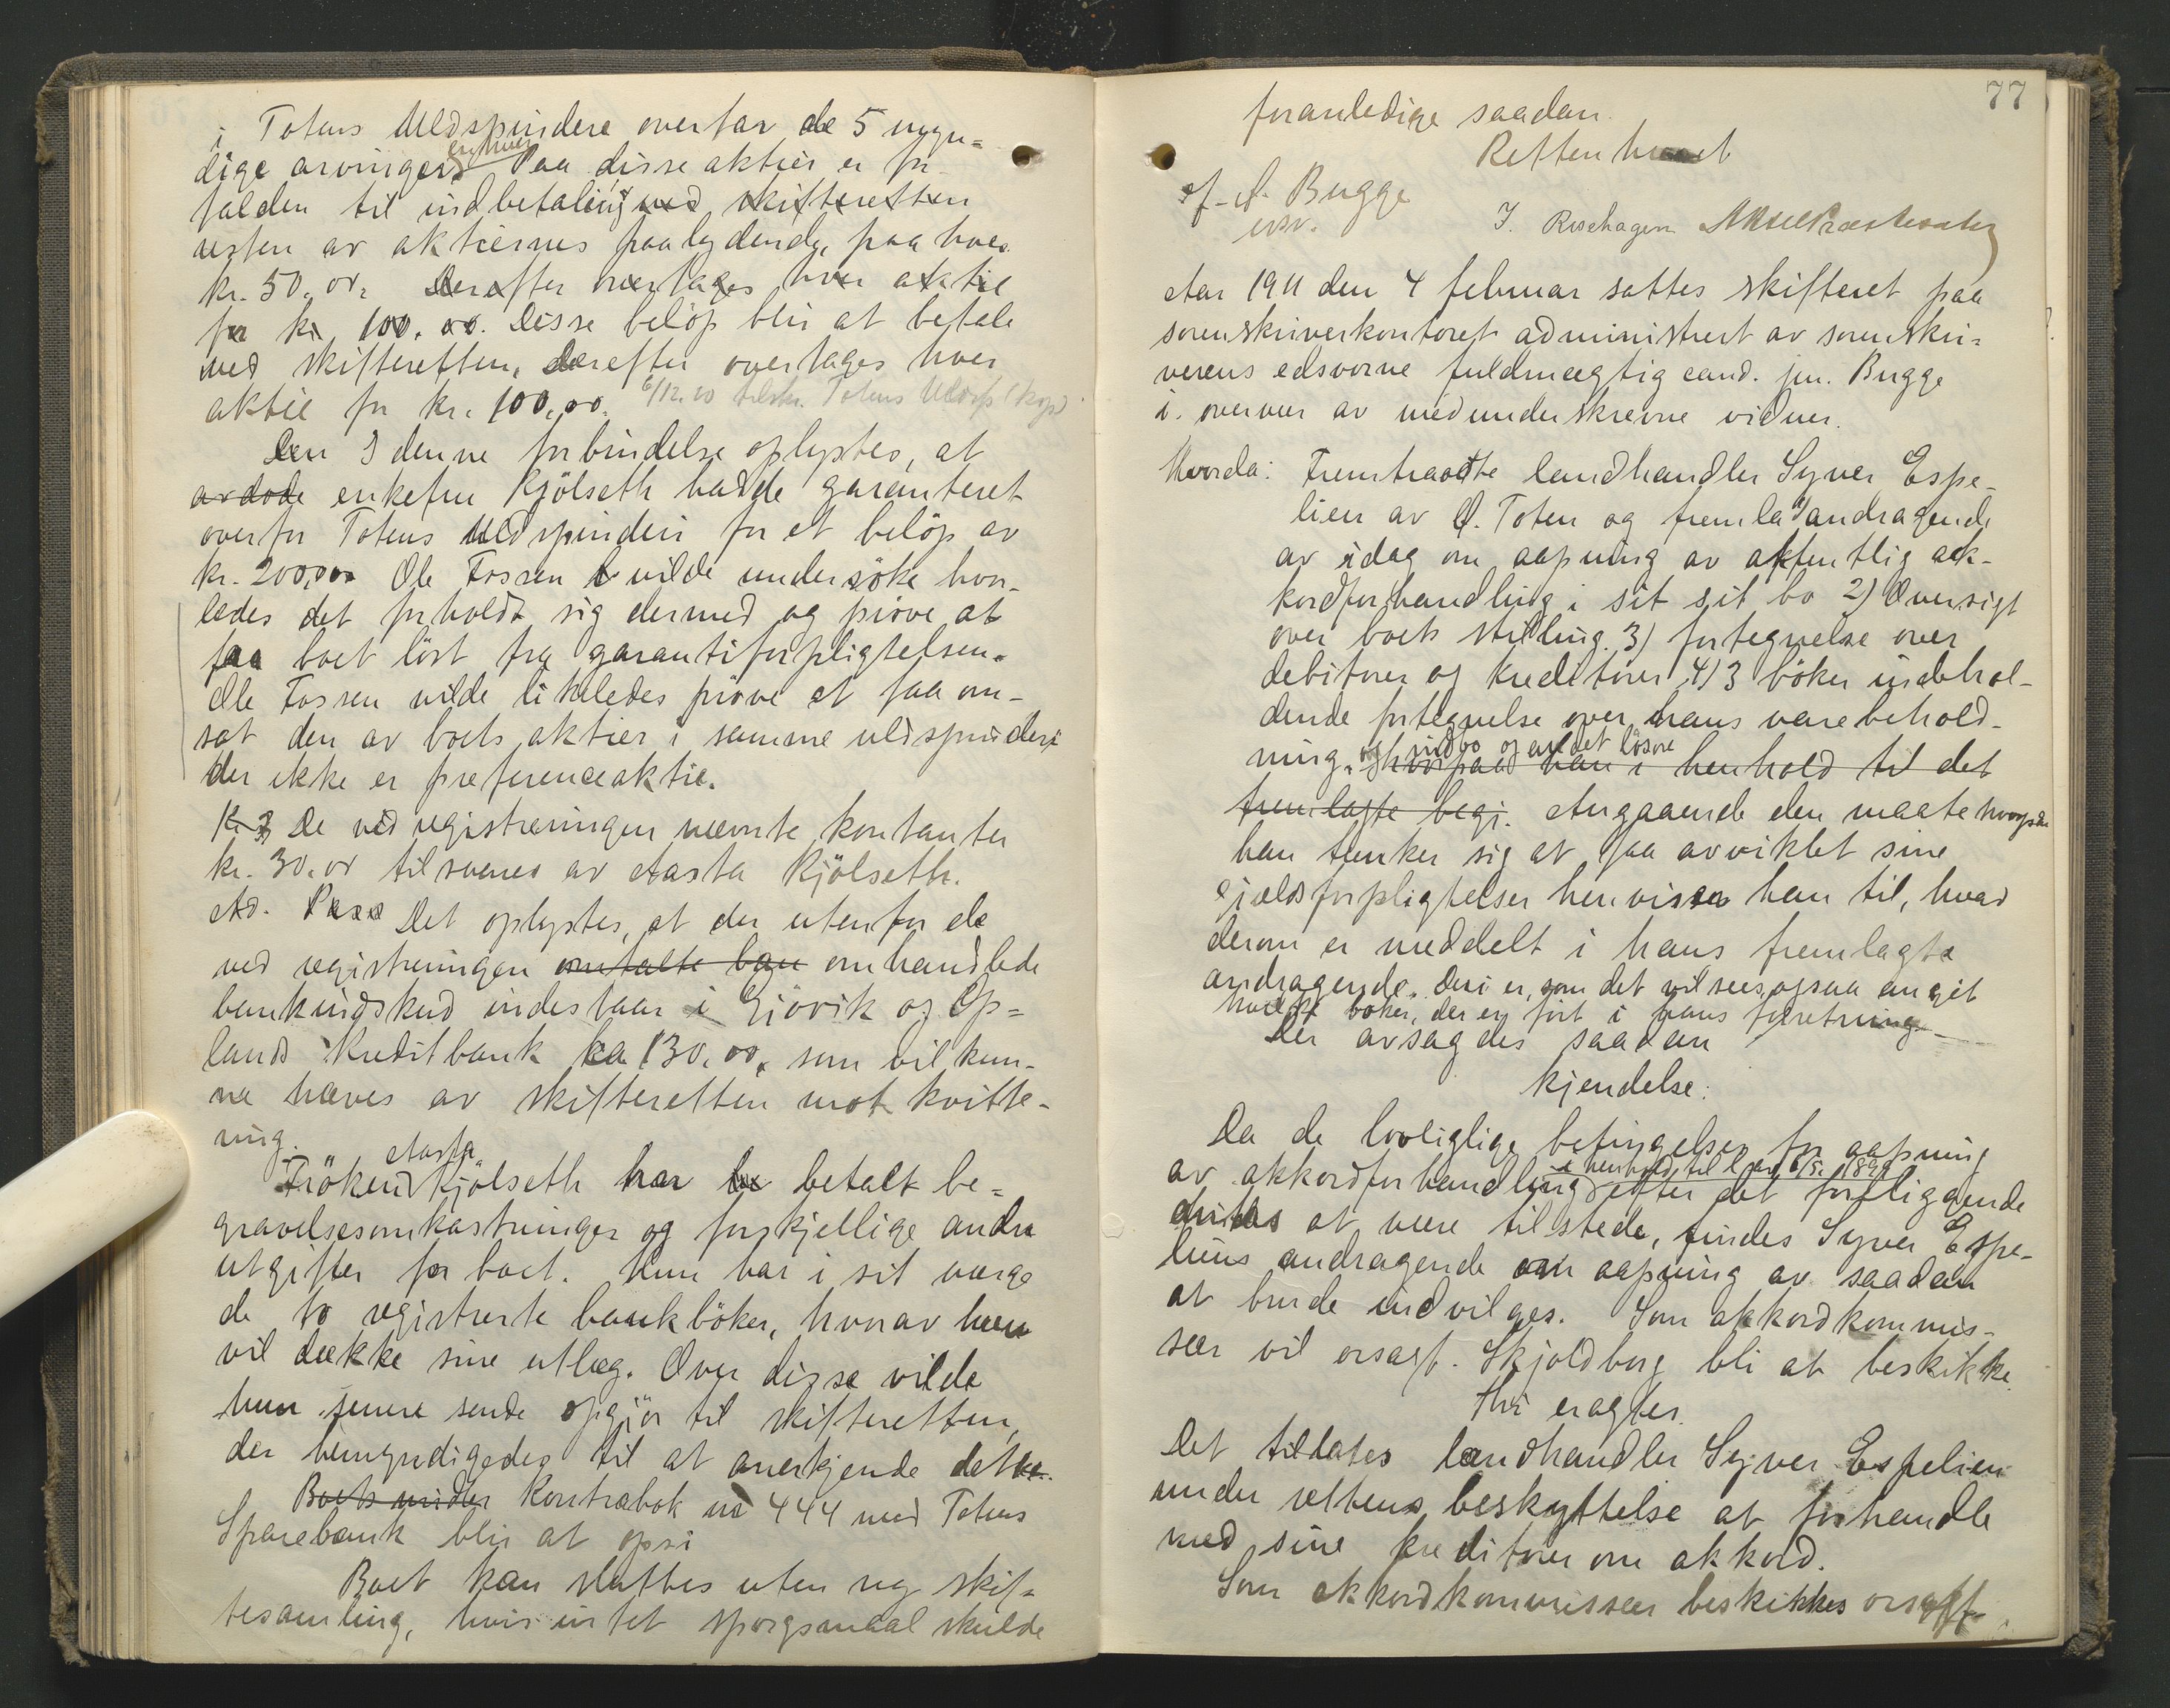 i Totens Uldspinderi overtar de 5 myn-
dige arvinger en hver. Paa disse aktier er for
falden til indbetaling ved skifteretten
resten av aktiernes paalydende, paa hver
kr. 50.00. Derefter overtages hver aktie
for kr. 100.00. Disse beløp blir at betale
ved skifteretten, derefter overtages hver
aktie for kr. 100.00. 6/12.10 tilskr. Totens Uldsp (kopi)
Den I denne forbindelse oplystes, at
avdøde enkefru Kjölseth hadde garanteret
overfor Totens Uldspinderi for et belöp av
kr. 200,000 Ole Fossen vilde undersöke hvor-
ledes det forholdt sig dermed og pröve at
faa boet löst fra garantiforpligtelsen.
Ole Fossen vilde likeledes pröve at faa om-
sat den av boets aktier i samme uldspinderi
der ikke er preferenceaktie.
De ved registreringen nævnte kontanter
kr. 30.00 tilsvares av Aasta Kjölseth.
Ad. Pass Det oplystes, at der utenfor de
ved registreringen omtalte ban omhandlede
bankindskud indestaar i Gjövik og Op-
lands Kreditbank ca 130.00, som vil kun-
ne hæves av skifteretten mot kvitte-
ring.
Fröken Aasta Kjölseth har betalt be-
gravelsesomkostninger og forskjellige andre
utgifter for boet. Hun har i sit værge
de to registrerte bankböker, hvorav hun
vil dække sine utlæg. Over disse vilde
hun senere sende opgjör til skifteretten,
der bemyndigedes til at anerkjende dette.
Boets midler Kontrabok no 444 med Totens
Sparebank blir at opsi
Boet kan sluttes uten ny skif-
tesamling, hvis intet spörgsmaal skulde
77
foranledige saadan.
Retten hævet
A. Bugge
esv.
J. Rosehagen
Aar 1911 den 4 februar sattes skifteret paa
sorenskriverkontoret administrert av sorenskri-
verens edsvorne fuldmægtig cand. jur. Bugge
i overvær av medunderskrevne vidner.
Hvorda: Fremtraadte landhandler Syver Espe-
lien av Ö. Toten og fremla 1) andragende
av idag om aapning av offentlig ak-
kordforhandling i sit sit bo 2) Oversigt
over boets stilling. 3) fortegnelse over
debitorer og kreditorer 4) 3 böker indehol-
dende fortegnelse over hans varebehold-
ning, og indbo og andet lösöre hvorpaa han i henhold til det
fremlagte begj. Angaaende den maate hvorpaa
han tænker sig at faa avviklet sine
gjældsforpligtelser henviser han til, hvad
derom er meddelt i hans fremlagte
andragende. Deri er, som det vil sees, ogsaa angit
hvilke böker, der er fört i hans forretning.
Der avsagdes saadan
kjendelse:
Da de lovliglige betingelser for aapning
av akkordforhandling i henhold til lov 6/5. 1899 efter det foreliggende
findes at være tilstede, findes Syver Espe-
liens andragende om aapning av saadan
at burde indvilges. Som akkordkommis-
sær vil orsagf. Skjoldborg bli at beskikke.
Thi eragtes.
Det tillates landhandler Syver Espelien
under rettens beskyttelse at forhandle
med sine kreditorer om akkord.
Som akkordkommissær beskikkes orsagf.